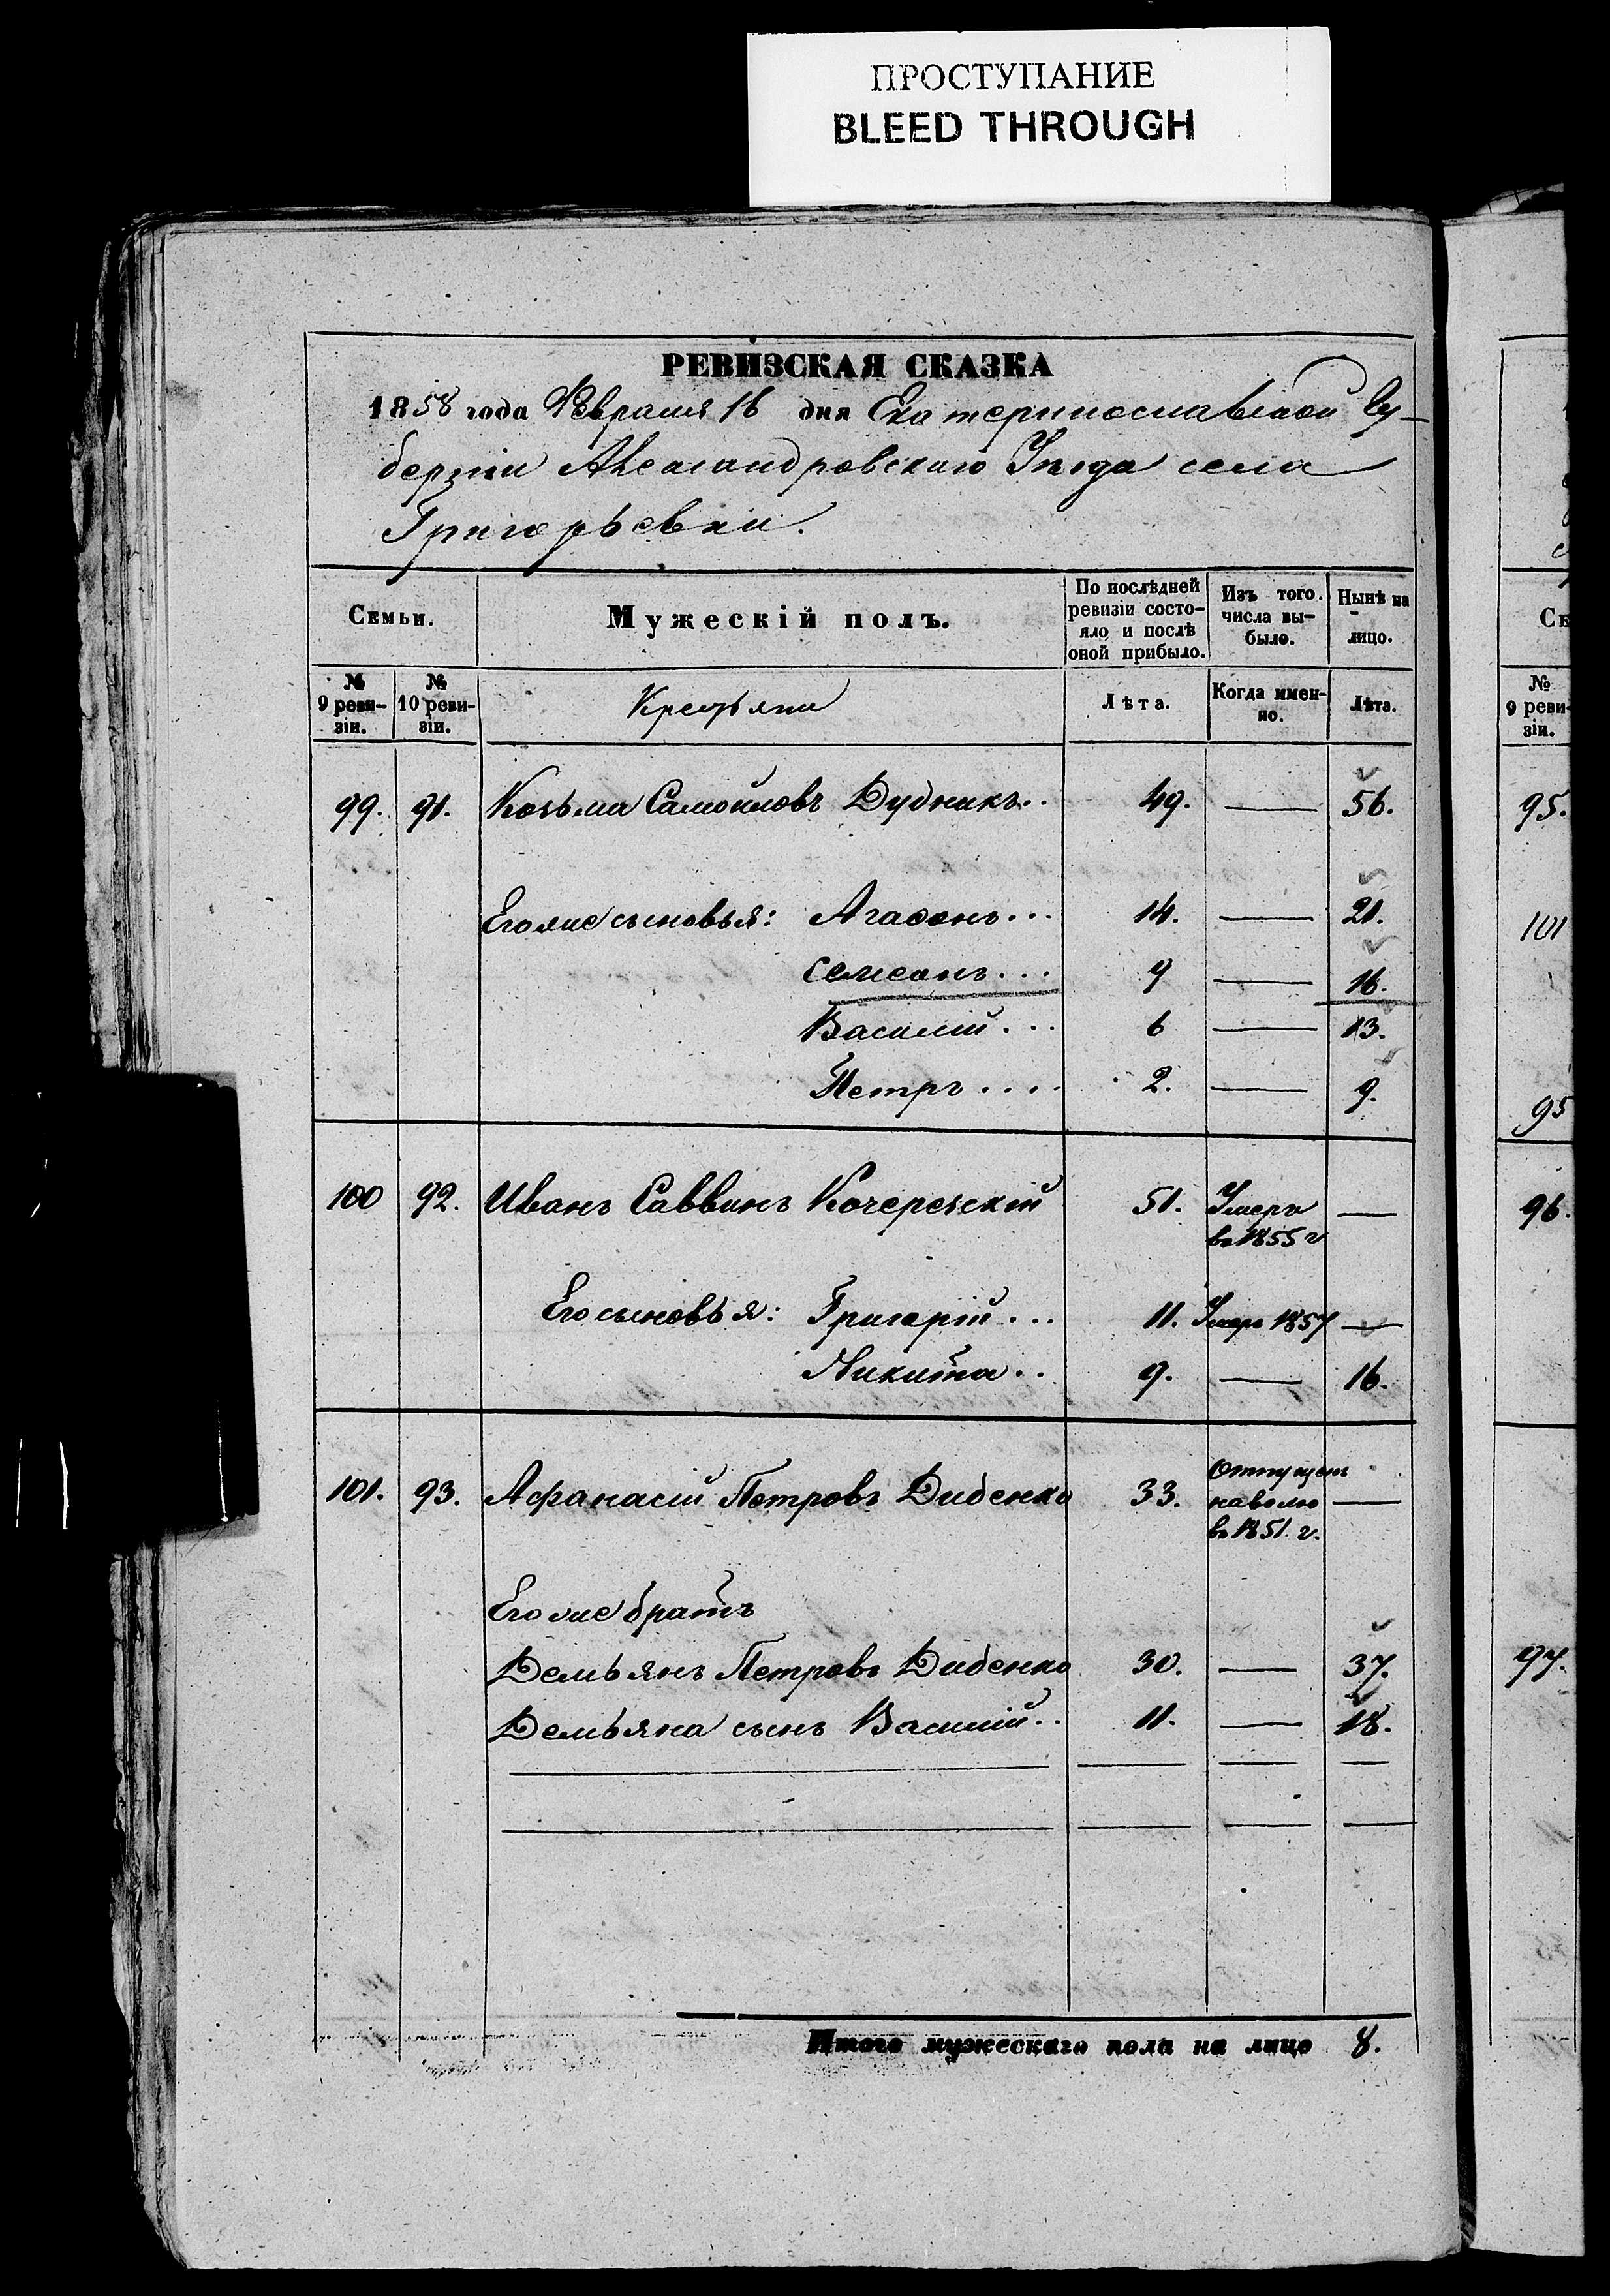 ПРОСТУПАНИЕ
BLEED THROUGH
РЕВИЗСКАЯ СКАЗКА
1858 года Февраля 16 дня Екатеринославской Гу-
берніи Александровскаго Уѣзда села
Григорьевки.
Семьи. Мужескій полъ. По послѣдней ревизіи состо-яло и послѣ оной прибыло. Изъ того числа вы-было. Нынѣ на лицо.
№ 9 реви-зіи. № 10 реви-зіи. Крестьяни Лѣта. Когда имен-но. Лѣта.
99. 91. Козьма Самойловъ Дудникъ.. 49. — 56.
Егоже сыновья: Агаѳонъ... 14. — 21.
Семеонъ... 9 — 16.
Василій... 6 — 13.
Петръ.... 2. — 9.
100 92. Иванъ Саввинъ Кочережскій 51. Умеръ в 1855 г —
Его сыновья: Григорій... 11. Умеръ 1857 —
Никита.. 9. — 16.
101. 93. Афанасій Петровъ Диденко 33. Отпущенъ наволю в 1851. г. —
Егоже братъ
Демьянъ Петровъ Диденко 30. — 37.
Демьяна сынъ Василій.. 11. — 18.
Итого мужескаго пола на лицо 8.
№
9 реви-
зіи.
95.
101
95
96.
97.